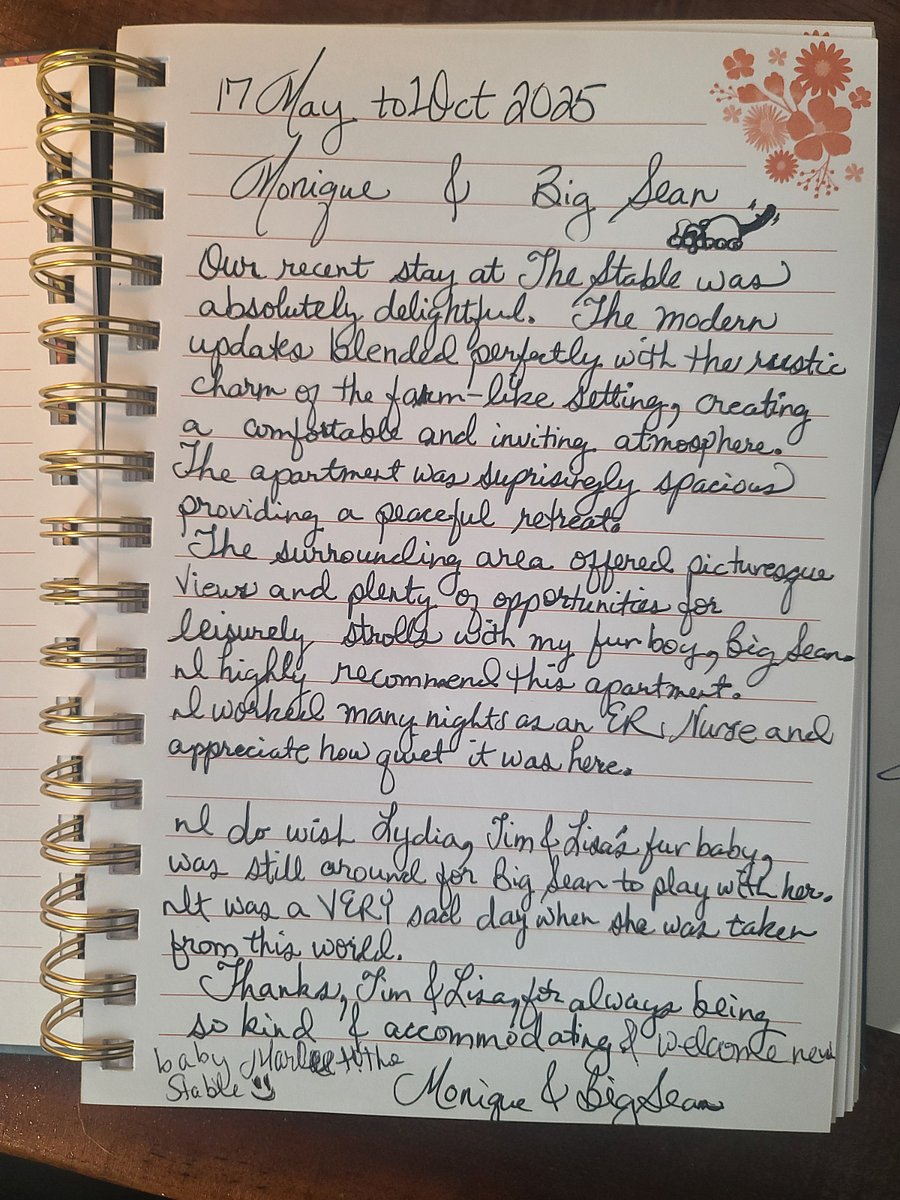 17 May to 1 Oct 2025
Monique & Big Sean
Our recent stay at The Stable was
absolutely delightful. The modern
updates blended perfectly with the rustic
charm of the farm-like setting, creating
a comfortable and inviting atmosphere.
The apartment was suprisingly spacious
providing a peaceful retreat.
The surrounding area offered picturesque
views and plenty of opportunities for
leisurely strolls with my fur boy, Big Sean.
I highly recommend this apartment.
I worked many nights as an ER Nurse and
appreciate how quiet it was here.
I do wish Lydia, Tim & Lisa's fur baby,
was still around for Big Sean to play with her.
It was a VERY sad day when she was taken
from this world.
Thanks, Tim & Lisa, for always being
so kind & accommodating & welcome new
baby Marlee to the
Stable
Monique & Big Sean